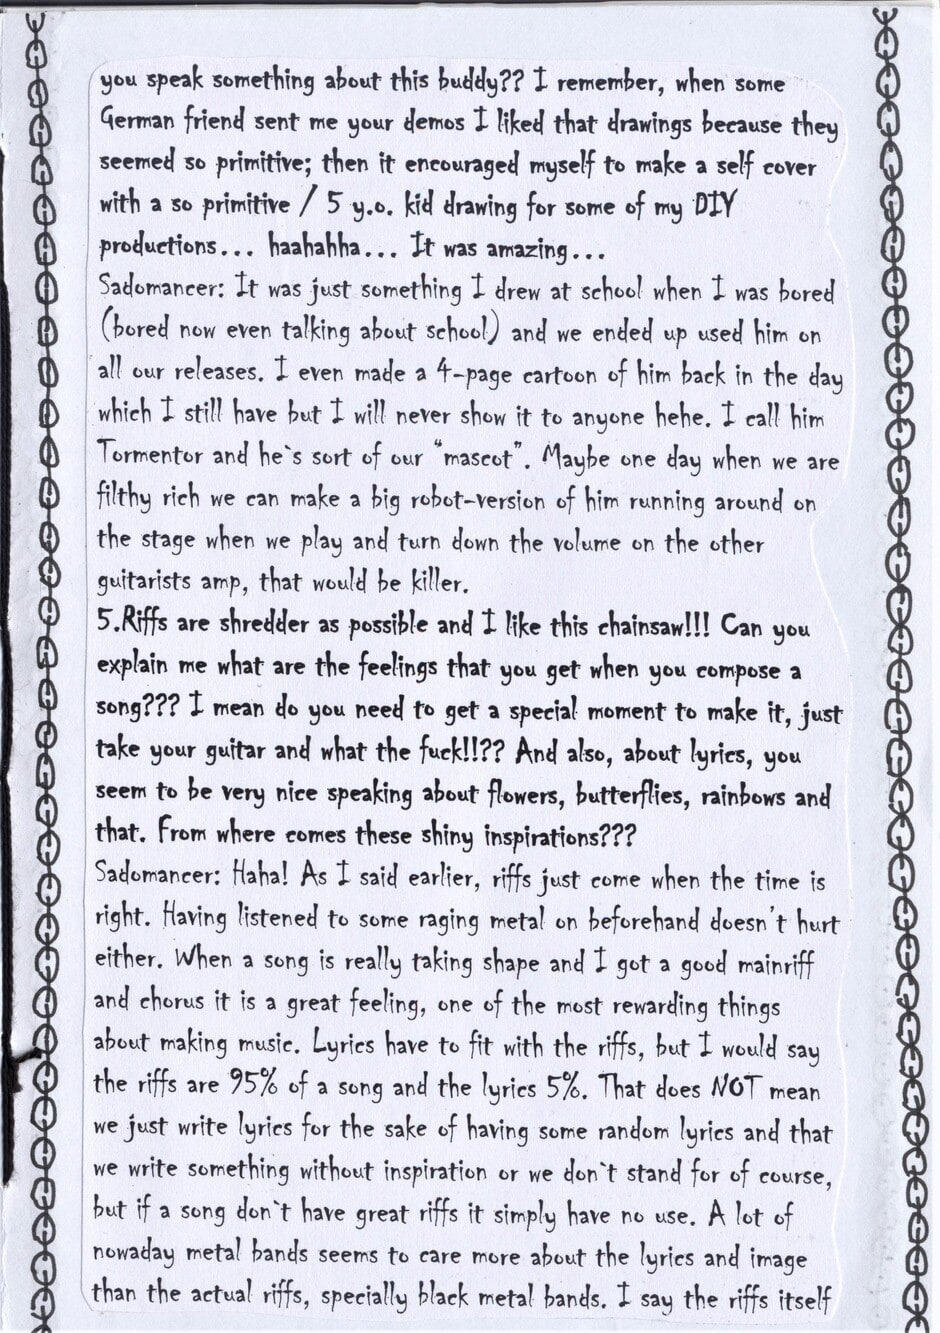 you speak something about this buddy?? I remember, when some
German friend sent me your demos I liked that drawings because they
seemed so primitive; then it encouraged myself to make a self cover
with a so primitive / 5 y.o. kid drawing for some of my DIY
productions... haahahha... It was amazing...
Sadomancer: It was just something I drew at school when I was bored
(bored now even talking about school) and we ended up used him on
all our releases. I even made a 4-page cartoon of him back in the day
which I still have but I will never show it to anyone hehe. I call him
Tormentor and he`s sort of our “mascot”. Maybe one day when we are
filthy rich we can make a big robot-version of him running around on
the stage when we play and turn down the volume on the other
guitarists amp, that would be killer.
5.Riffs are shredder as possible and I like this chainsaw!!! Can you
explain me what are the feelings that you get when you compose a
song??? I mean do you need to get a special moment to make it, just
take your guitar and what the fuck!!?? And also, about lyrics, you
seem to be very nice speaking about flowers, butterflies, rainbows and
that. From where comes these shiny inspirations???
Sadomancer: Haha! As I said earlier, riffs just come when the time is
right. Having listened to some raging metal on beforehand doesn't hurt
either. When a song is really taking shape and I got a good mainriff
and chorus it is a great feeling, one of the most rewarding things
about making music. Lyrics have to fit with the riffs, but I would say
the riffs are 95% of a song and the lyrics 5%. That does NOT mean
we just write lyrics for the sake of having some random lyrics and that
we write something without inspiration or we don`t stand for of course,
but if a song don`t have great riffs it simply have no use. A lot of
nowaday metal bands seems to care more about the lyrics and image
than the actual riffs, specially black metal bands. I say the riffs itself